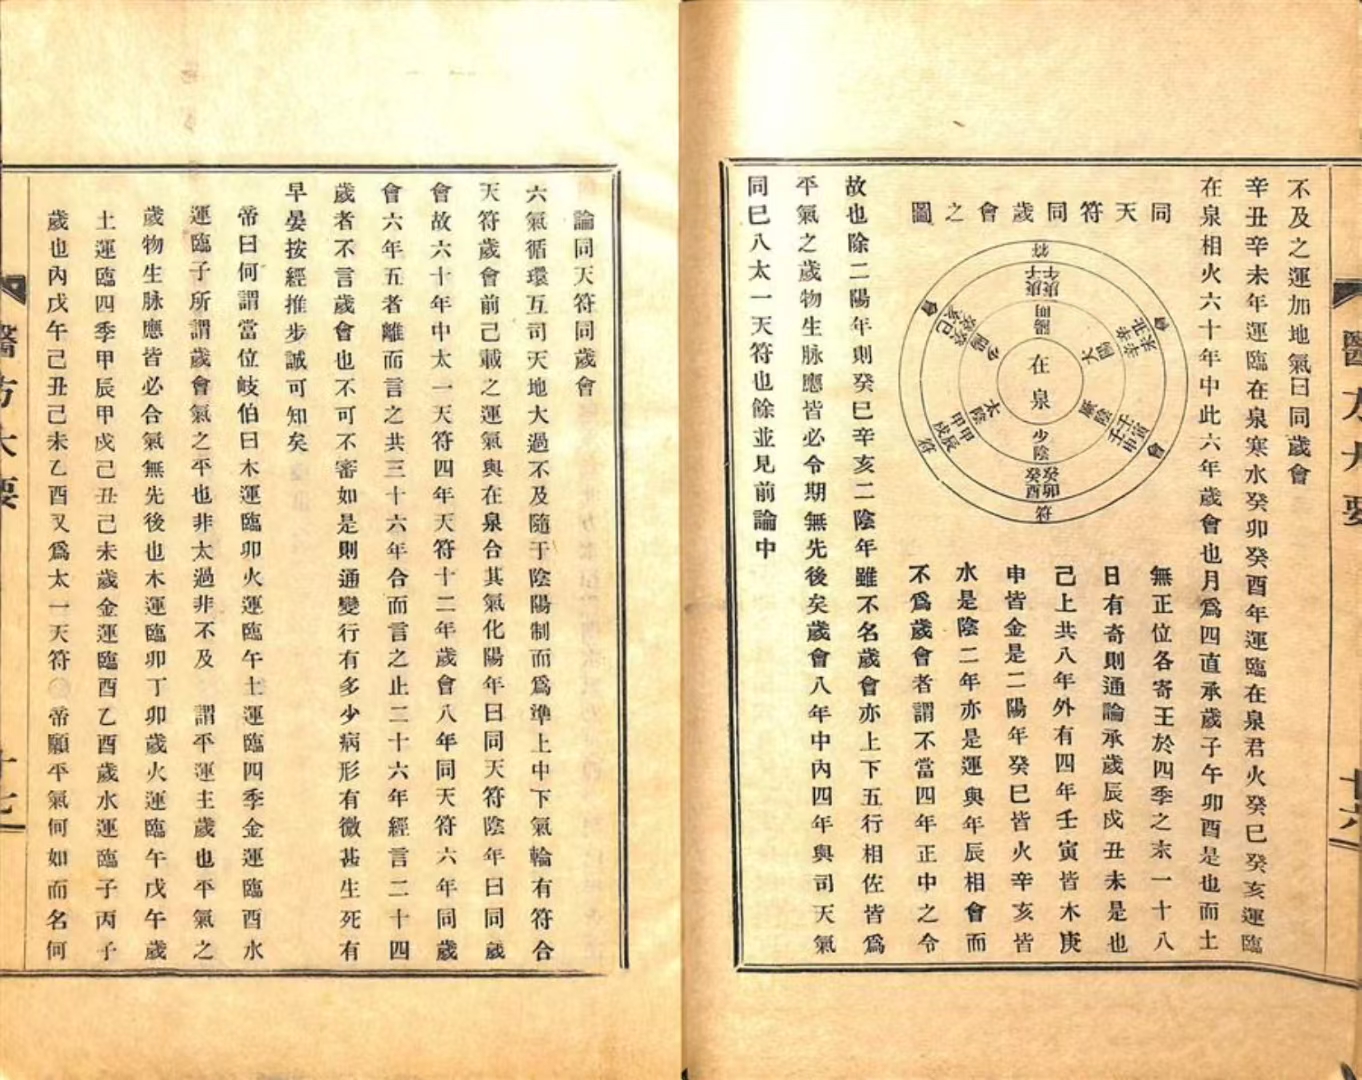 醫方大要
廿六
不及之運加地氣曰同歲會
辛丑辛未年運臨在泉寒水癸卯癸酉年運臨在泉君火癸巳癸亥運臨
在泉相火六十年中此六年歲會也月爲四直承歲子午卯酉是也而土
同天符同歲會之圖
在泉
少陰
癸卯癸酉
符
厥陰
壬寅壬申
會
太陽
辛丑辛未
會
陽明
庚子庚午
符
少陽
癸巳癸亥
會
太陰
甲辰甲戌
符
無正位各寄王於四季之末一十八
日有奇則通論承歲辰戌丑未是也
己上共八年外有四年壬寅皆木庚
申皆金是二陽年癸巳皆火辛亥皆
水是陰二年亦是運與年辰相會而
不爲歲會者謂不當四年正中之令
故也除二陽年則癸巳辛亥二陰年雖不名歲會亦上下五行相佐皆爲
平氣之歲物生脉應皆必令期無先後矣歲會八年中內四年與司天氣
同巳八太一天符也餘並見前論中
論同天符同歲會
六氣循環互司天地大過不及隨于陰陽制而爲準上中下氣輪有符合
天符歲會前己載之運氣與在泉合其氣化陽年曰同天符陰年曰同歲
會故六十年中太一天符四年天符十二年歲會八年同天符六年同歲
會六年五者離而言之共三十六年合而言之止二十六年經言二十四
歲者不言歲會也不可不審如是則通變行有多少病形有微甚生死有
早晏按經推步誠可知矣
帝曰何謂當位岐伯曰木運臨卯火運臨午土運臨四季金運臨酉水
運臨子所謂歲會氣之平也非太過非不及 謂平運主歲也平氣之
歲物生脉應皆必合氣無先後也木運臨卯丁卯歲火運臨午戊午歲
土運臨四季甲辰甲戌己丑己未歲金運臨酉乙酉歲水運臨子丙子
歲也內戊午己丑己未乙酉又爲太一天符 帝願平氣何如而名何
醫方大要
十七